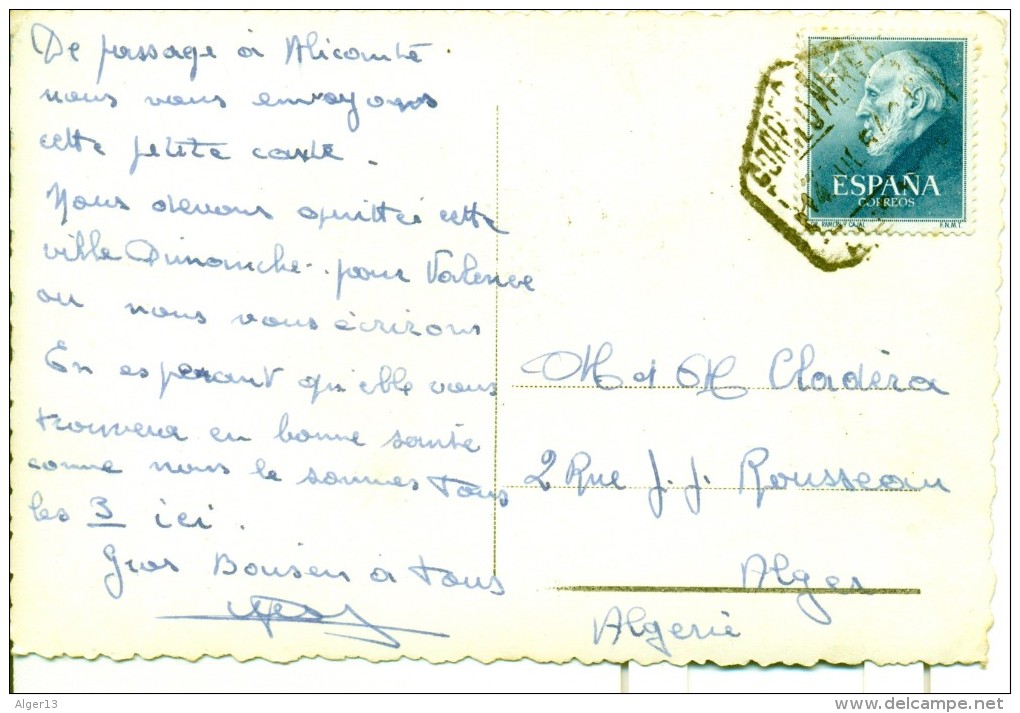 De passage à Alicante
nous vous envoyons
cette petite carte.
Nous devons quitter cette
ville Dimanche pour Valence
ou nous vous écrirons
En esperant qu'elle vous
trouvera en bonne santé
comme nous le sommes tous
les 3 ici.
Gros Baisers à tous
ESPAÑA
CORREOS
RAMON Y CAJAL F.N.M.T.
M et M Cladéra
2 Rue J. J. Rousseau
Alger
Algerie
Alger13
www.delcampe.net